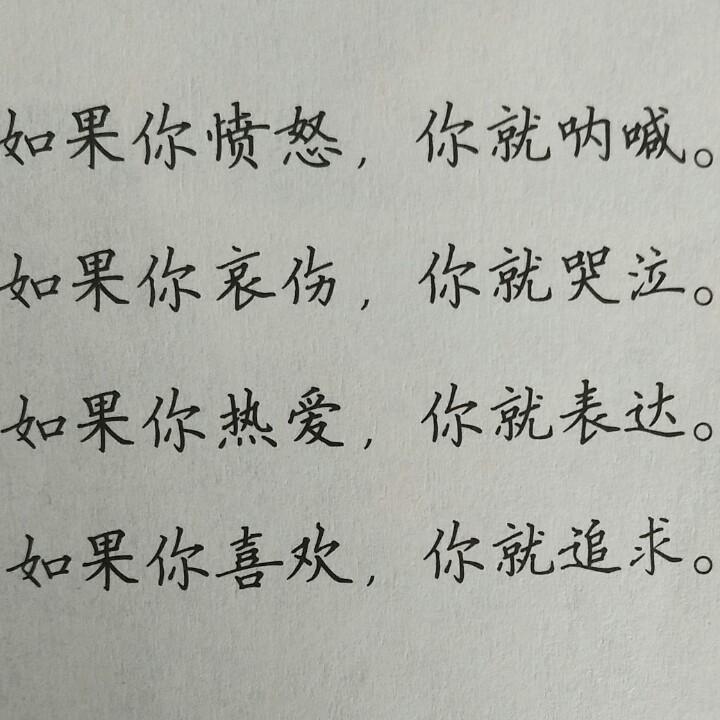 如果你愤怒，你就呐喊。
如果你哀伤，你就哭泣。
如果你热爱，你就表达。
如果你喜欢，你就追求。